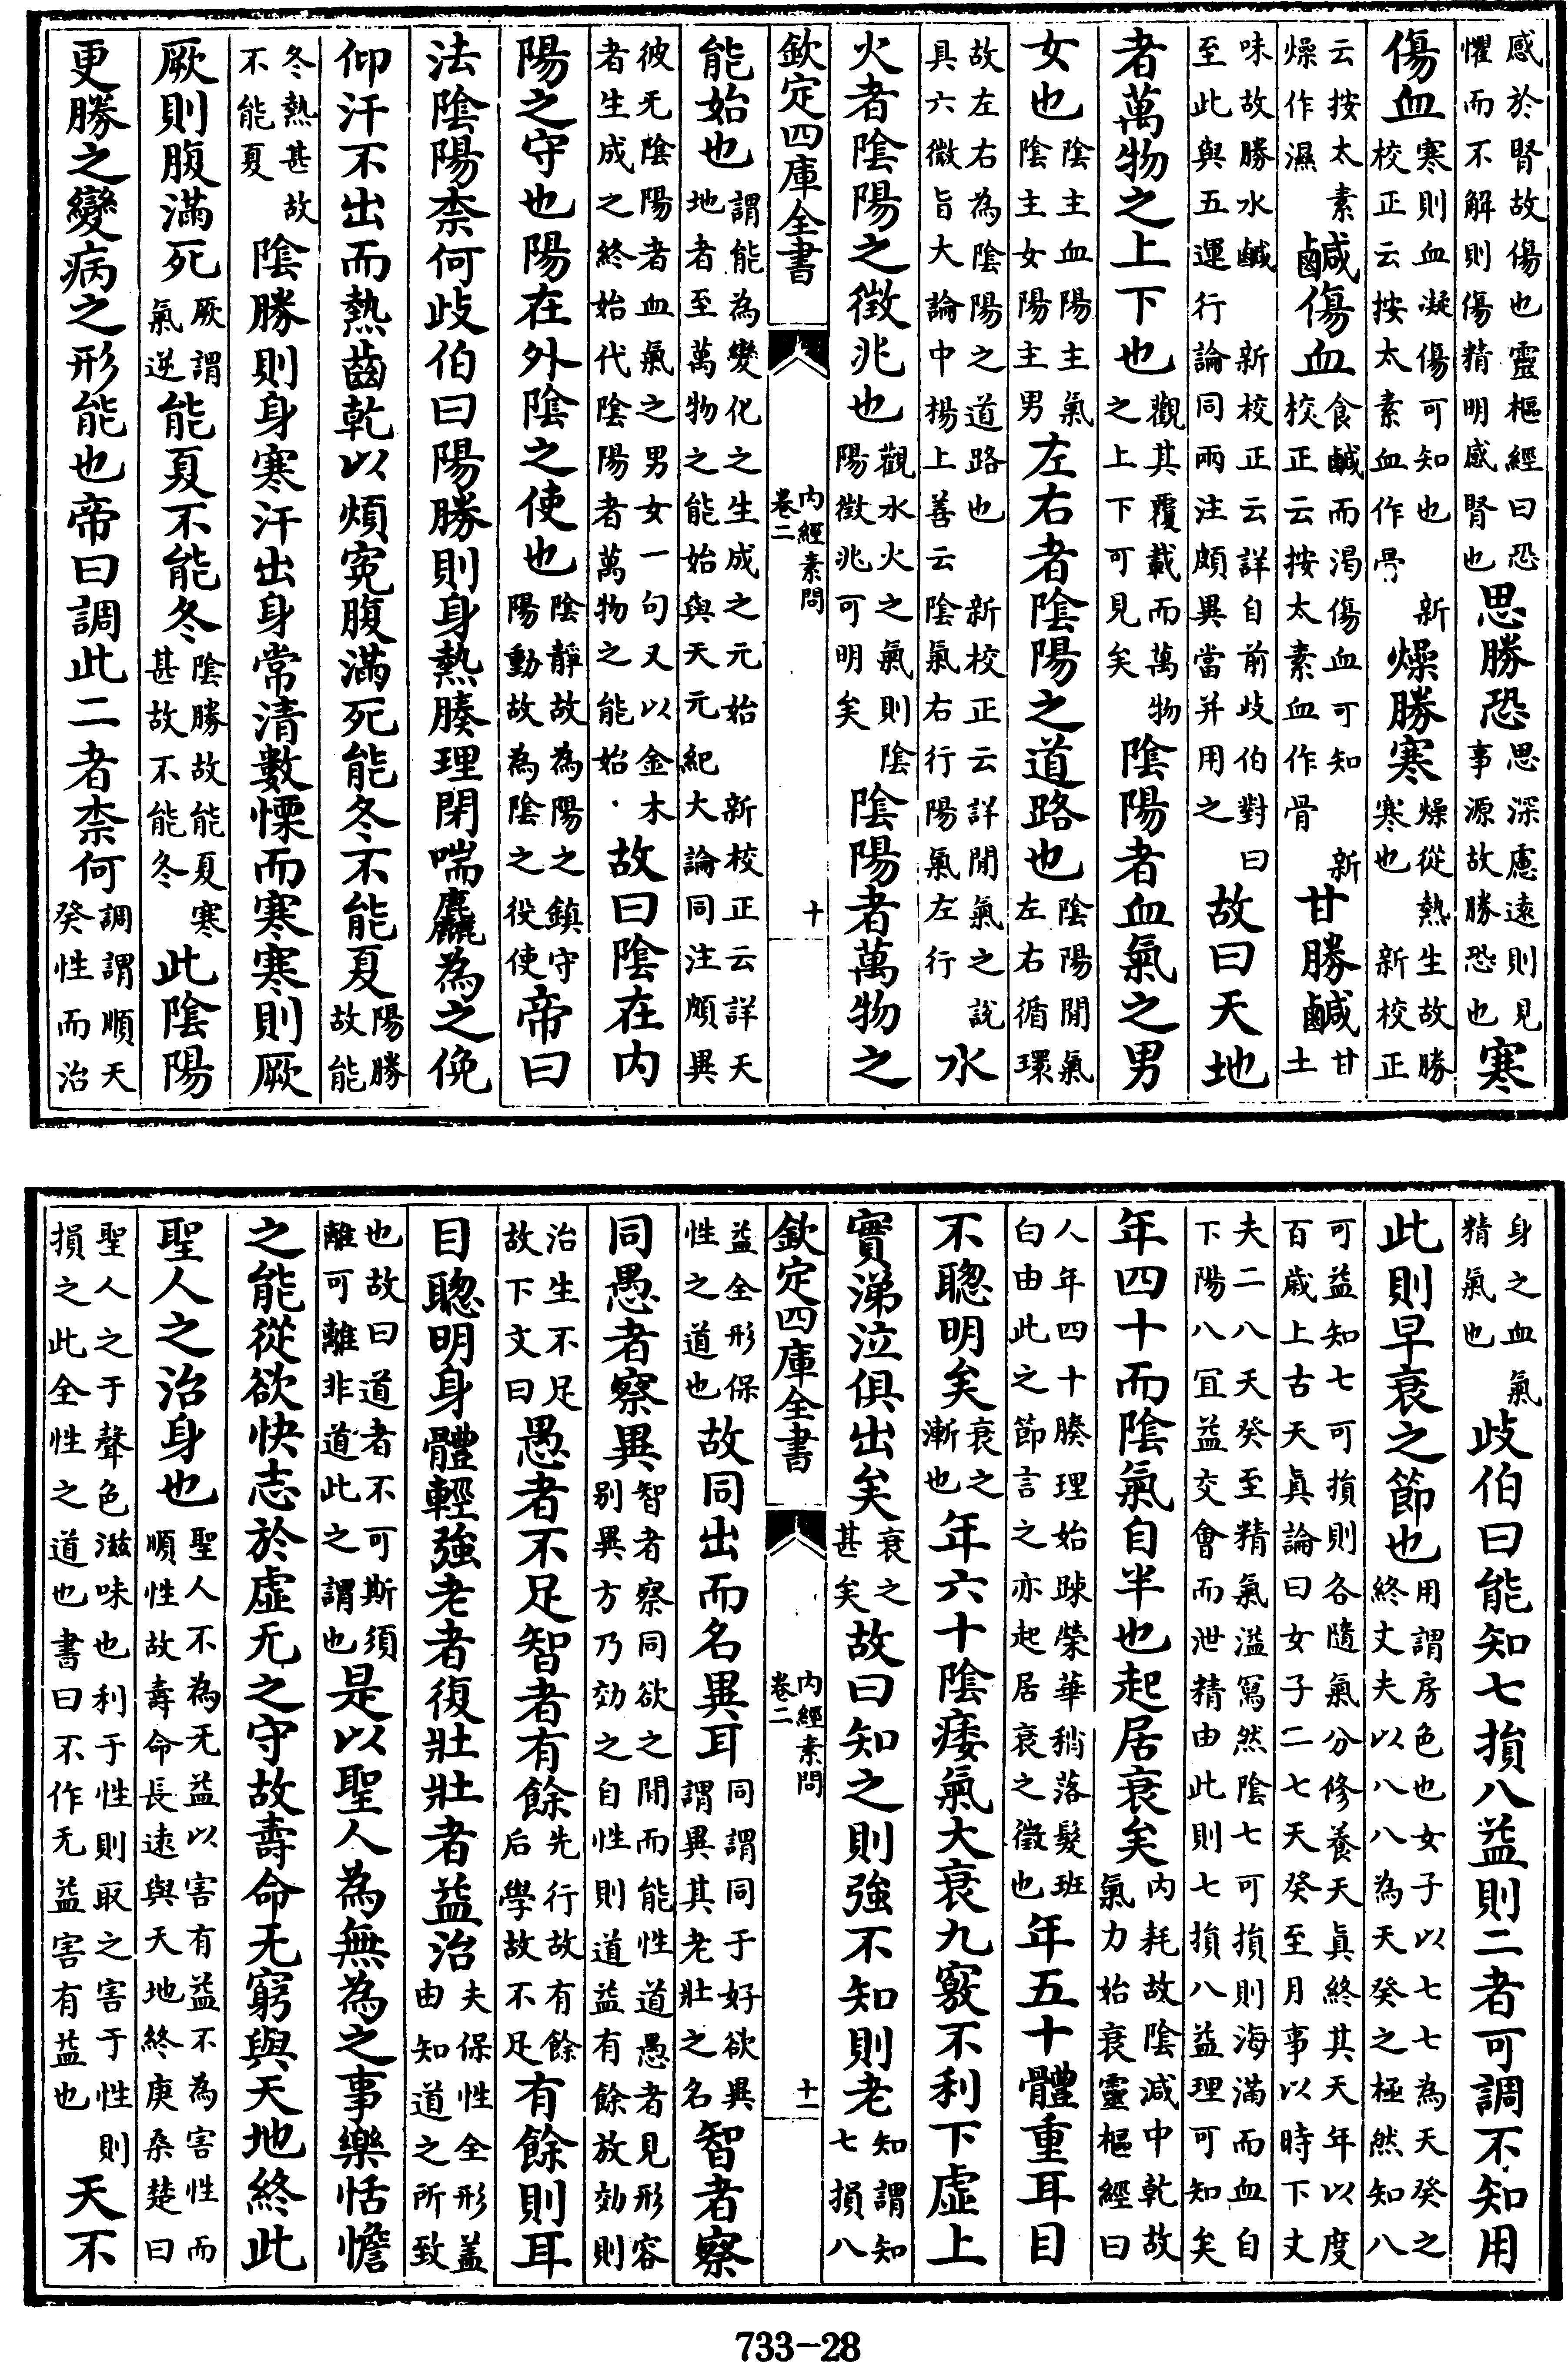 感於腎故傷也靈樞經曰恐懼而不解則傷精明感腎也思勝恐思深慮遠則見事源故勝恐也寒
傷血寒則血凝傷可知也 新校正云按太素血作骨燥勝寒燥從熱生故勝寒也 新校正
云按太素燥作濕鹹傷血食鹹而渴傷血可知 新校正云按太素血作骨甘勝鹹甘土
味故勝水鹹 新校正云詳自前歧伯對曰至此與五運行論同兩注頗異當并用之故曰天地
者萬物之上下也觀其覆載而萬物之上下可見矣陰陽者血氣之男
女也陰主血陽主氣陰主女陽主男左右者陰陽之道路也陰陽間氣左右循環
故左右為陰陽之道路也 新校正云詳間氣之說具六微旨大論中楊上善云陰氣右行陽氣左行水
火者陰陽之徵兆也觀水火之氣則陰陽徵兆可明矣陰陽者萬物之
欽定四庫全書 內經素問 卷二 十
能始也謂能為變化之生成之元始 新校正云詳天地者至萬物之能始與天元紀大論同注頗異
彼无陰陽者血氣之男女一句又以金木者生成之終始代陰陽者萬物之能始故曰陰在内
陽之守也陽在外陰之使也陰靜故為陽之鎮守陽動故為陰之役使帝曰
法陰陽柰何歧伯曰陽勝則身熱腠理閉喘麤為之俛
仰汗不出而熱齒乾以煩寃腹滿死能冬不能夏陽勝故能
冬熱甚故不能夏陰勝則身寒汗出身常清數慄而寒寒則厥
厥則腹滿死厥謂氣逆能夏不能冬陰勝故能夏寒甚故不能冬此陰陽
更勝之變病之形能也帝曰調此二者柰何調謂順天癸性而治
身之血氣精氣也歧伯曰能知七損八益則二者可調不知用
此則早衰之節也用謂房色也女子以七七為天癸之終丈夫以八八為天癸之極然知八
可益知七可損則各隨氣分修養天真終其天年以度百歲上古天真論曰女子二七天癸至月事以時下丈
夫二八天癸至精氣溢寫然陰七可損則海滿而血自下陽八宜益交會而泄精由此則七損八益理可知矣
年四十而陰氣自半也起居衰矣内耗故陰減中乾故氣力始衰靈樞經曰
人年四十腠理始踈榮華稍落髮班白由此之節言之亦起居衰之徵也年五十體重耳目
不聰明矣衰之漸也年六十陰痿氣大衰九竅不利下虛上
實涕泣俱出矣衰之甚矣故曰知之則強不知則老知謂知七損八
欽定四庫全書 內經素問 卷二 十一
益全形保性之道也故同出而名異耳同謂同于好欲異謂異其老壯之名智者察
同愚者察異智者察同欲之間而能性道愚者見形容别異方乃効之自性則道益有餘放効則
治生不足故下文曰愚者不足智者有餘先行故有餘后學故不足有餘則耳
目聰明身體輕強老者復壯壯者益治夫保性全形蓋由知道之所致
也故曰道者不可斯須離可離非道此之謂也是以聖人為無為之事樂恬憺
之能從欲快志於虛无之守故壽命无窮與天地終此
聖人之治身也聖人不為无益以害有益不為害性而順性故壽命長遠與天地終庚桑楚曰
聖人之于聲色滋味也利于性則取之害于性則損之此全性之道也書曰不作无益害有益也天不
733-28